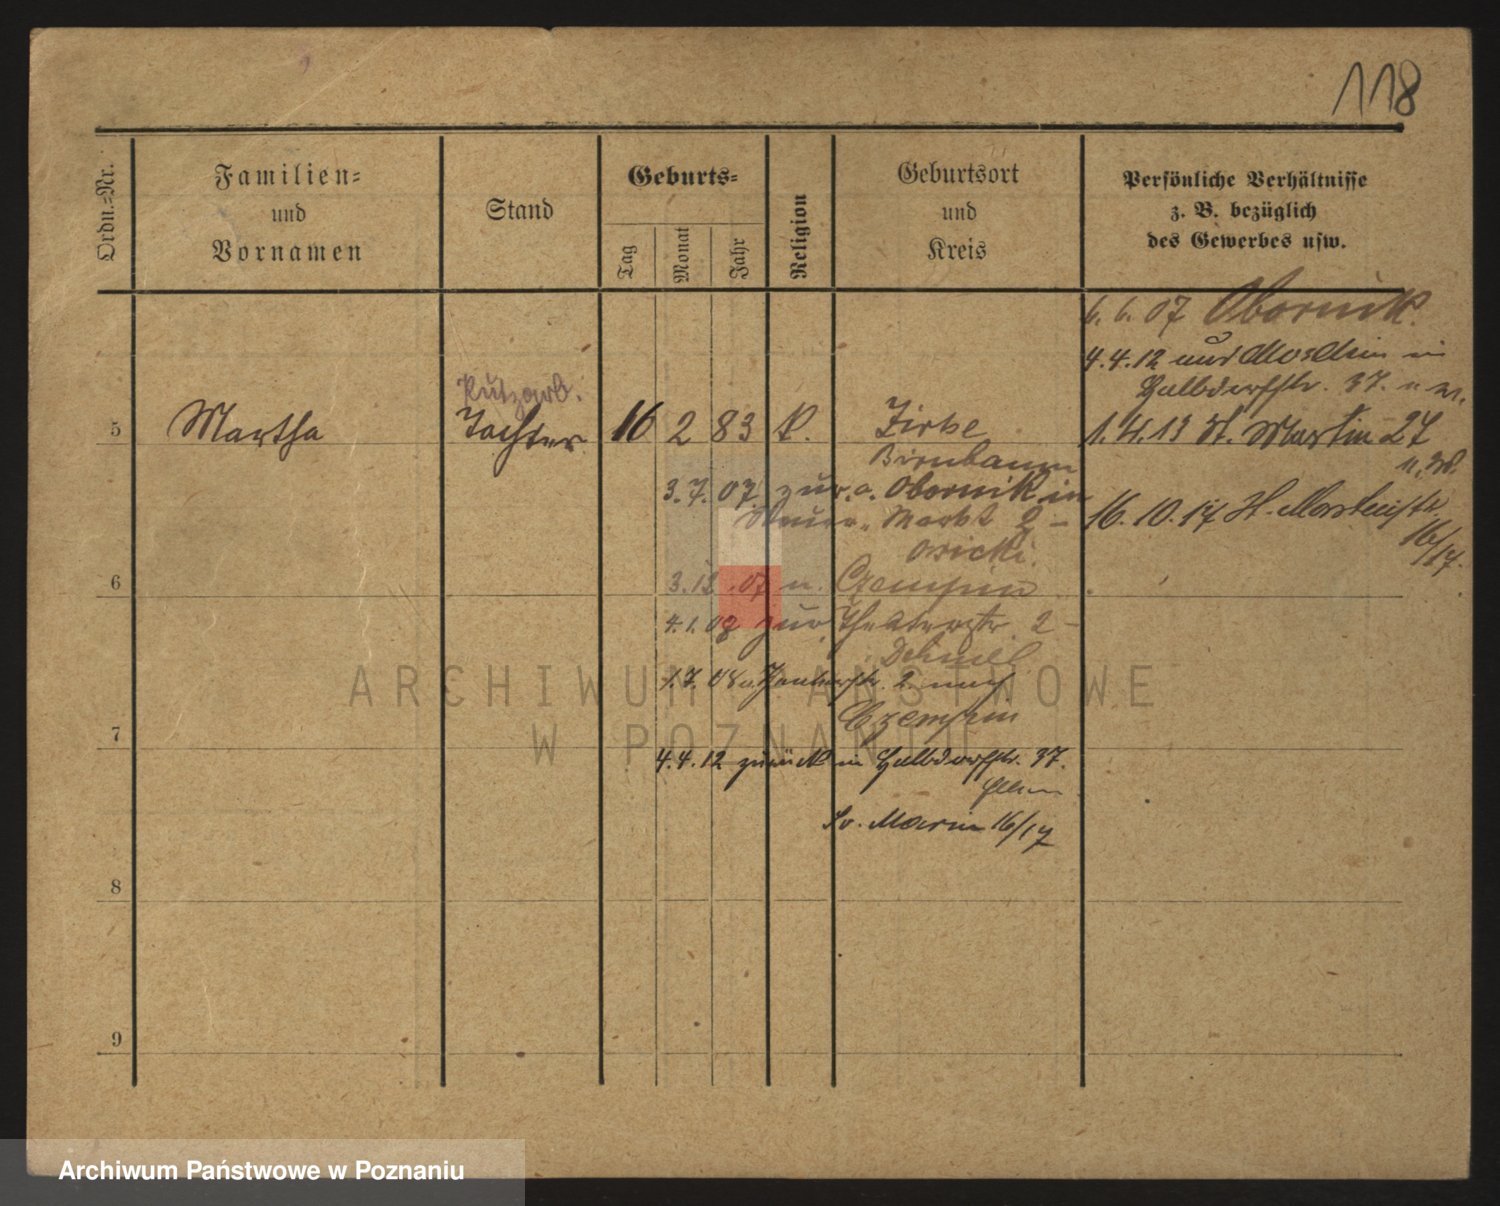 118
Ordn.=Nr.
Familien=
und
Vornamen
Stand
Geburts=
Tag
Monat
Jahr
Religion
Geburtsort
und
Kreis
Persönliche Verhältnisse
z. B. bezüglich
des Gewerbes usw.
6. 6. 07 Obornik.
4. 4. 12 in
Halbdorfstr. 37.
Putzarb.
5 Martha Tochter 16 2 83 K. Zirke
Birnbaum
1. 4. 13 St. Martin 27
3. 7. 07 zur. a. Obornik in
Markt 2 -
16. 10. 17
16/17.
6
3. 12. 07 n. Czempin
4. 1. 08 zur. Theaterstr. 2 -
1. 7. 08 2 nach
Czempin
7
4. 4. 12 zurück in Halbdorfstr. 37.
16/17
8
9
ARCHIWUM PAŃSTWOWE
W POZNANIU
Archiwum Państwowe w Poznaniu